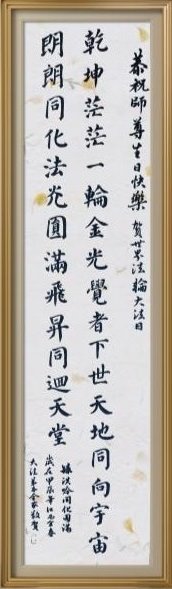 恭祝師尊生日快樂 賀世界法輪大法日
乾坤茫茫一輪金光覺者下世天地同向宇宙
朗朗同化法光圓滿飛昇同迴天堂
錄洪吟同化圓滿
歲在甲辰年江西宜春
大法弟子全家敬賀